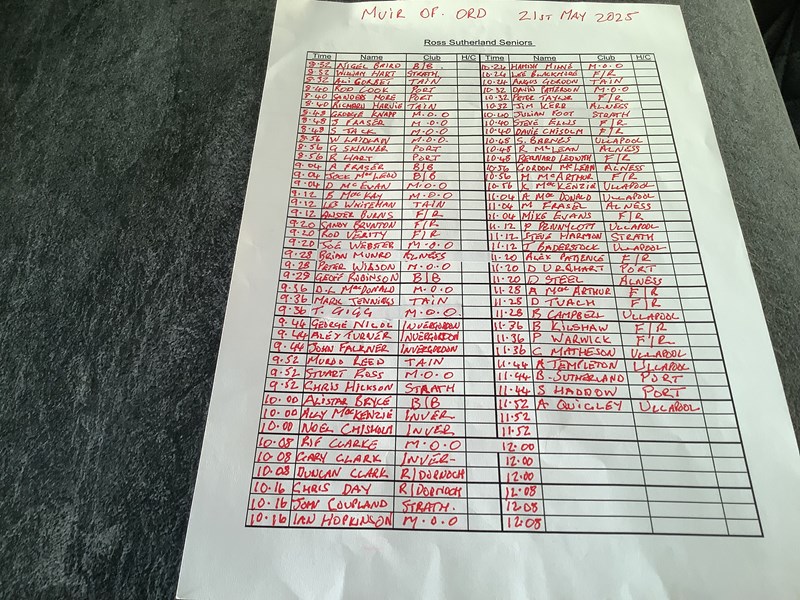 MUIR OF. ORD 21ST MAY 2025
Ross Sutherland Seniors
Time Name Club H/C Time Name Club H/C
8.32 NIGEL BAIRD B/B 10.24 HAMISH MILNE M.O.O
8.32 WILLIAM HART STRATH 10.24 LEE BLACKMORE F/R
8.32 ALI GORBET TAIN 10.24 ANGUS GORDON TAIN
8.40 ROD COOK PORT 10.32 DAVID PATERSON M.O.O
8.40 SANDERS MORE PORT 10.32 PETER TAYLOR F/R
8.40 RICHARD HARVIE TAIN 10.32 JIM KERR ALNESS
8.48 GEORGE KNAPP M.O.O 10.40 JULIAN FOOT STRATH
8.48 J FRASER M.O.O 10.40 STEVE ELLIS F/R
8.48 S TACK M.O.O 10.40 DAVIE CHISOLM F/R
8.56 W LAIDLAW M.O.O 10.48 S. BARNES ULLAPOOL
8.56 G SKINNER PORT 10.48 R McLEAN ALNESS
8.56 B HART PORT 10.48 BERNARD LEDWITH F/R
9.04 A FRASER B/B 10.56 GORDON McLEAN ALNESS
9.04 JOCK MacLEOD B/B 10.56 M McARTHUR F/R
9.04 D McEWAN M.O.O 10.56 K MacKENZIE ULLAPOOL
9.12 B MacKAY M.O.O 11.04 A MacDONALD ULLAPOOL
9.12 LES WHITEMAN TAIN 11.04 M FRASEL ALNESS
9.12 ALISTER BURNS F/R 11.04 MIKE EVANS F/R
9.20 SANDY BRUNTON F/R 11.12 P PENNYLOTT ULLAPOOL
9.20 ROD VERITY F/R 11.12 STEVE HARMON STRATH
9.20 JOE WEBSTER M.O.O 11.12 T BADERSTOCK ULLAPOOL
9.28 BRIAN MUNRO ALNESS 11.20 ALEX PATIENCE F/R
9.28 PETER WIBSON M.O.O 11.20 D URQHART PORT
9.28 GEOFF ROBINSON B/B 11.20 D STEEL ALNESS
9.36 D.L MacDONALD M.O.O 11.28 A MacARTHUR F/R
9.36 MARK TENNISS TAIN 11.28 D TUACH F/R
9.36 T. GIGG M.O.O. 11.28 B CAMPBELL ULLAPOOL
9.44 GEORGE NICOL INVERGORDON 11.36 B KILSHAW F/R
9.44 ALEY TURNER INVERGORDON 11.36 P WARWICK F/R
9.44 JOHN FALKNER INVERGORDON 11.36 C MATHESON ULLAPOOL
9.52 MURDO REED TAIN 11.44 A TEMPLETON ULLAPOOL
9.52 STUART ROSS M.O.O 11.44 B. SUTHERLAND PORT
9.52 CHRIS HICKSON STRATH 11.44 S HADDOW PORT
10.00 ALISTAR BRYCE B/B 11.52 A QUIGLEY ULLAPOOL
10.00 ALLY MacKENZIE INVER 11.52
10.00 NOEL CHISHOLM INVER 11.52
10.08 CLARKE M.O.O 12.00
10.08 GARY CLARK INVER- 12.00
10.08 DUNCAN CLARK R/DORNOCH 12.00
10.16 CHRIS DAY R/DORNOCH 12.08
10.16 JOHN COUPLAND STRATH. 12.08
10.16 IAN HOPKINSON M.O.O 12.08